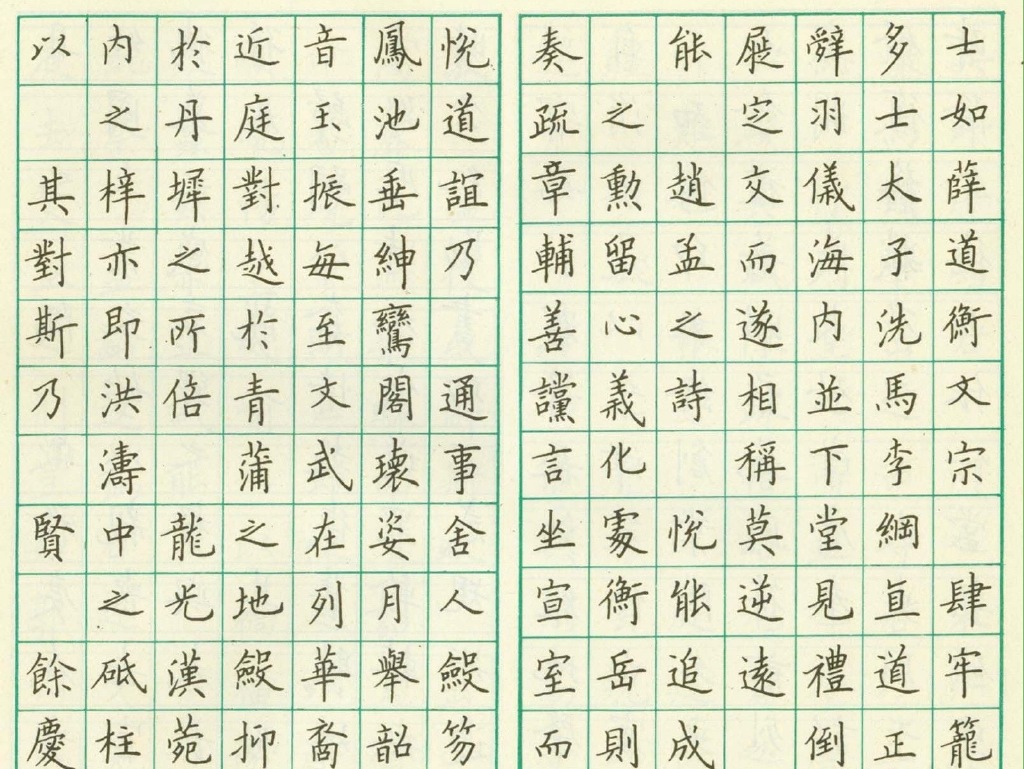 士如薛道衡文宗肆牢籠
多士太子洗馬李綱亘道正
辭羽儀海内並下堂見禮倒
屣定交而遂相稱莫逆遠
能趙孟之詩悦能追成
之勲留心義化處衡岳則
奏疏章輔善讜言坐宣室而
悦道誼乃通事舍人笏
鳳池垂紳鸞閣瓌姿月舉韶
音玉振每至文武在列華裔
近庭對越於青蒲之地抑
於丹墀之所倍龍光漢苑
内之梓亦即洪濤中之砥柱
以其對斯乃賢餘慶